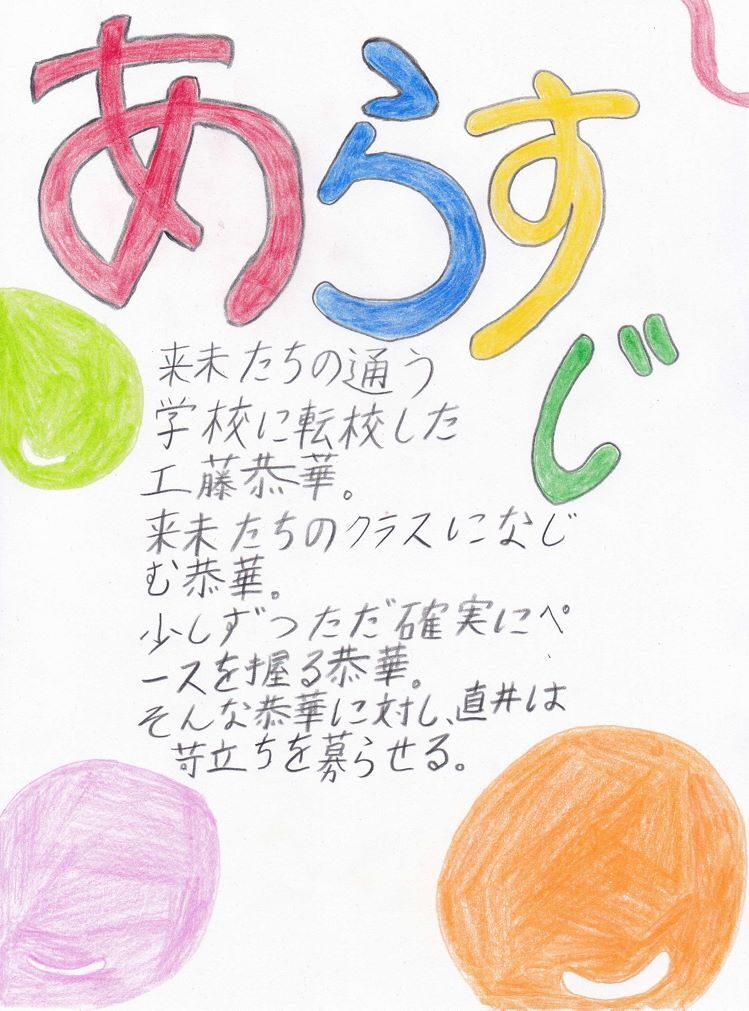 あらすじ
来未たちの通う
学校に転校した
工藤恭華。
来未たちのクラスになじ
む恭華。
少しずつただ確実にペ
ースを握る恭華。
そんな恭華に対し、直井は
苛立ちを募らせる。